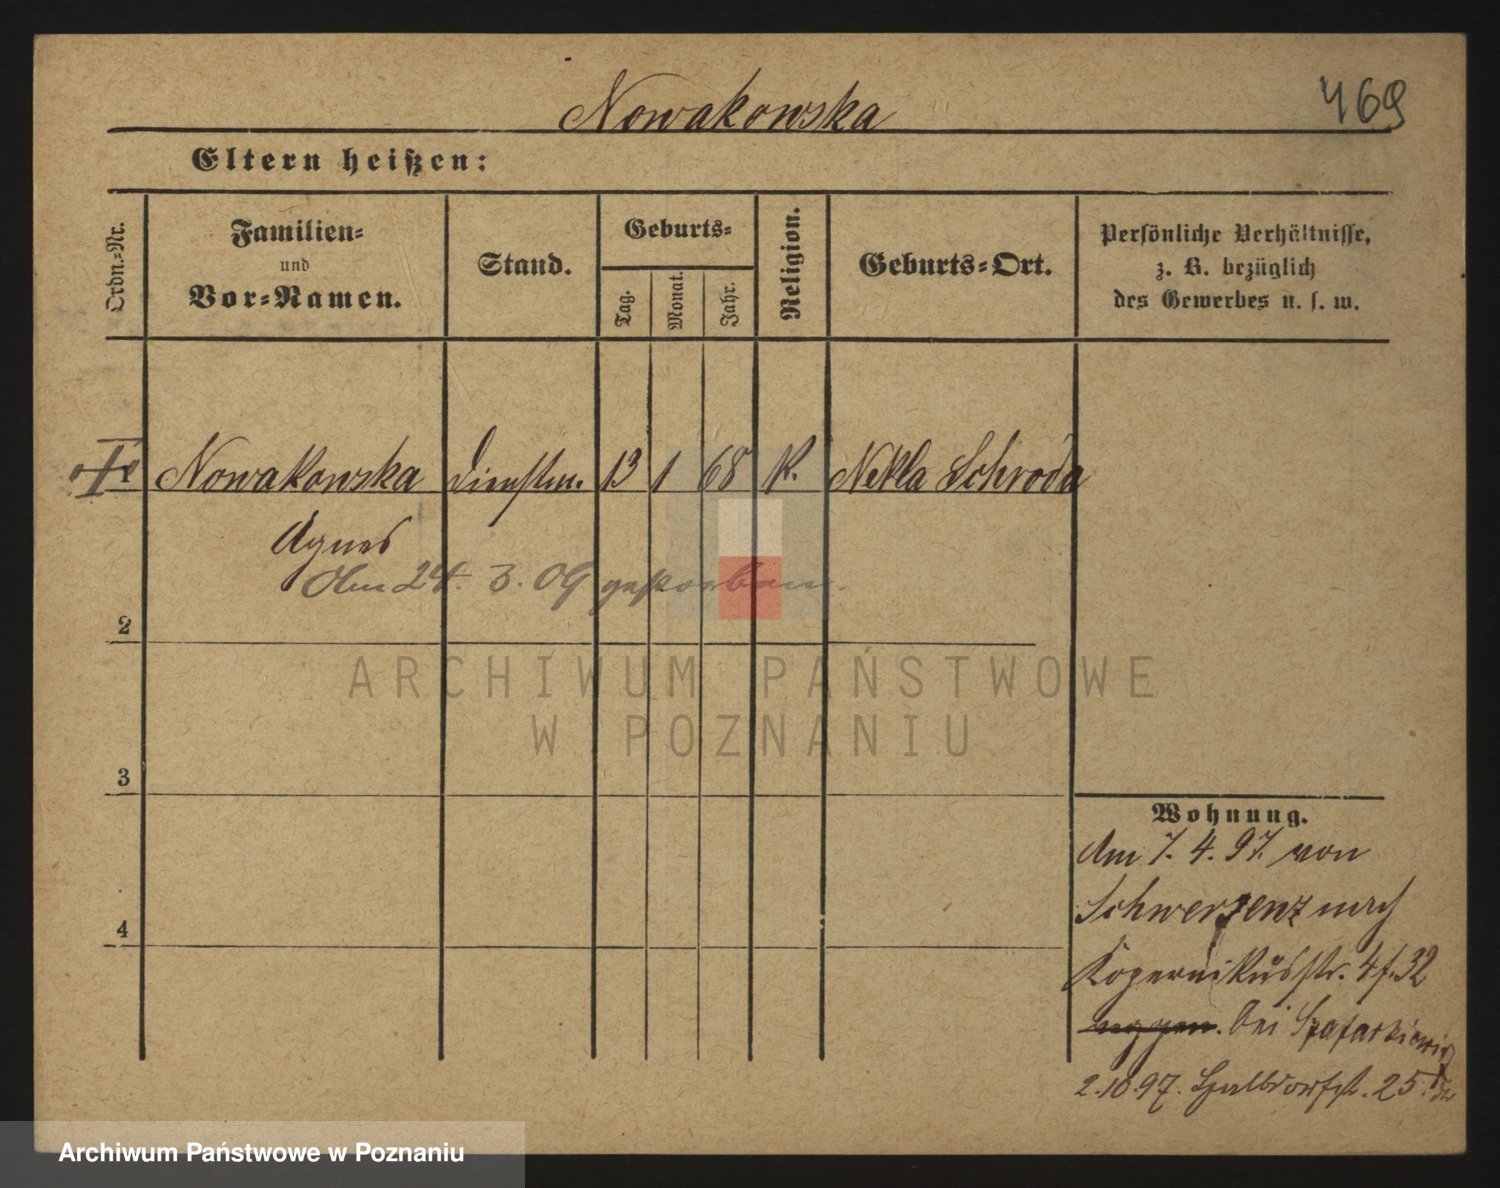 Nowakowska
469
Eltern heißen:
Ordn.-Nr.
Familien-
und
Vor-Namen.
Stand.
Geburts-
Tag.
Monat.
Jahr.
Religion.
Geburts-Ort.
Persönliche Verhältnisse,
z. B. bezüglich
des Gewerbes u. s. w.
Nowakowska Dienstm. 13 1 68 K. Nekla Schroda
Agnes
Am 24. 3. 09 gestorben.
2
3
4
Wohnung.
Am 7. 4. 97. von
Schwersenz nach
Kopernikusstr. 4 f. 32
bei Szafarkiewicz
2.10.97. 25.
ARCHIWUM PAŃSTWOWE
W POZNANIU
Archiwum Państwowe w Poznaniu